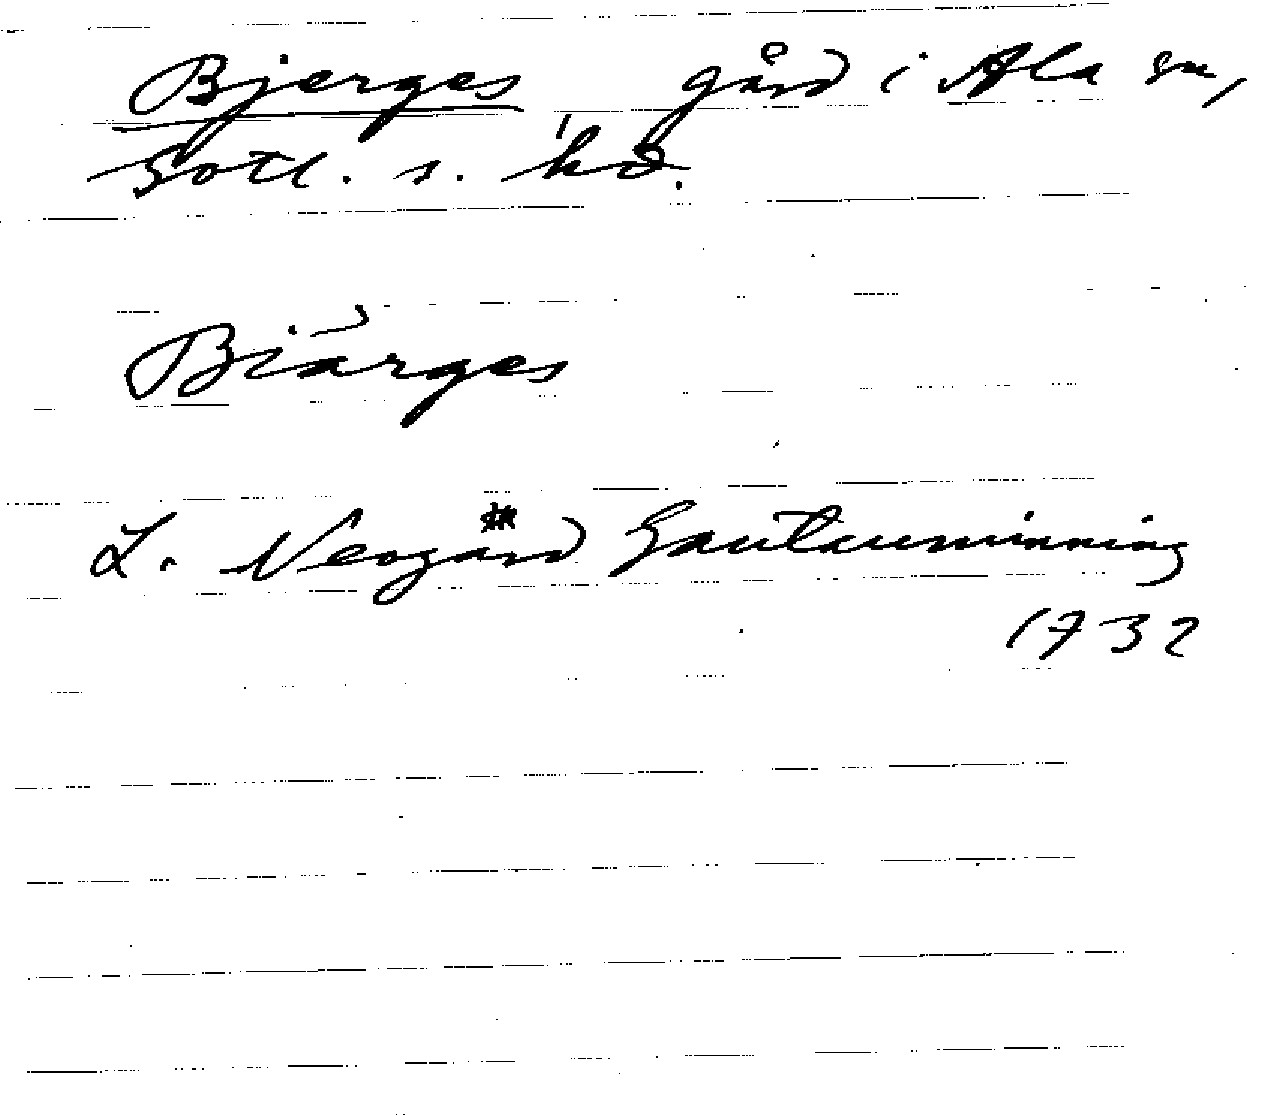 Bjerges gård i Ala sn,
Gotl. s. hd.
Biärges
L. Neogård Gautauminning
1732